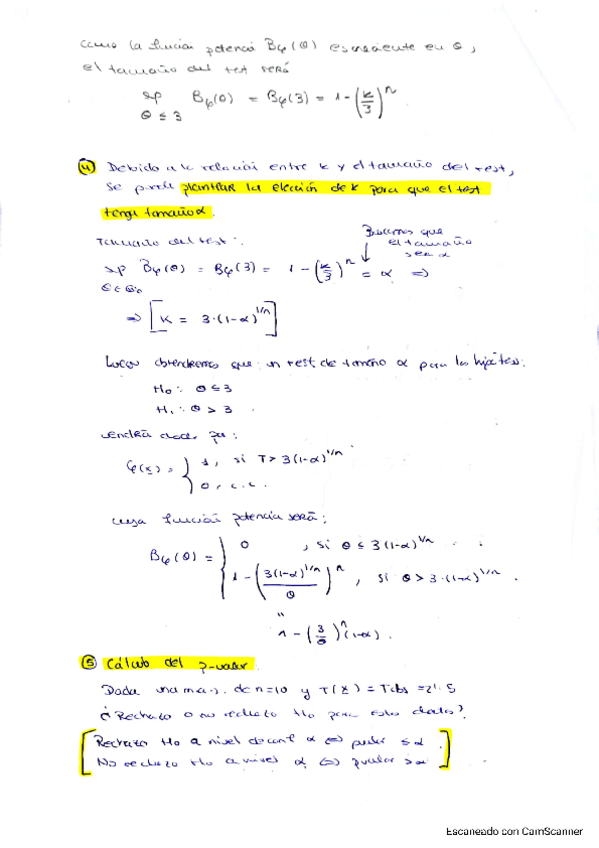 como la función potencia Bφ(θ) es creciente en θ,
el tamaño del test será
sup Bφ(θ) = Bφ(3) = 1-(k/3)^n
θ ≤ 3
④ Debido a la relación entre k y el tamaño del test,
se puede plantear la elección de k para que el test
tenga tamaño α.
Buscamos que
el tamaño
sea α
Tamaño del test:
sup Bφ(θ) = Bφ(3) = 1-(k/3)^n = α ⇒
θ∈Θ₀
⇒ [K = 3·(1-α)^1/n]
Luego obtendremos que un test de tamaño α para las hipótesis:
H₀: θ ≤ 3
H₁: θ > 3
vendrá dado por:
φ(x) = { 1, si T > 3(1-α)^1/n
0, c.c.
cuya función potencia será:
Bφ(θ) = { 0 , si θ ≤ 3(1-α)^1/n
1-(3(1-α)^1/n / θ)^n , si θ > 3·(1-α)^1/n.
"
1-(3/θ)^n (1-α).
⑤ Cálculo del p-valor
Dada una m.a.s. de n=10 y T(x) = Tobs = 2'5
¿Rechazo o no rechazo H₀ para estos datos?
[Rechazo H₀ a nivel de α ⇔ pvalor ≤ α.
No rechazo H₀ a nivel α ⇔ pvalor > α]
Escaneado con CamScanner